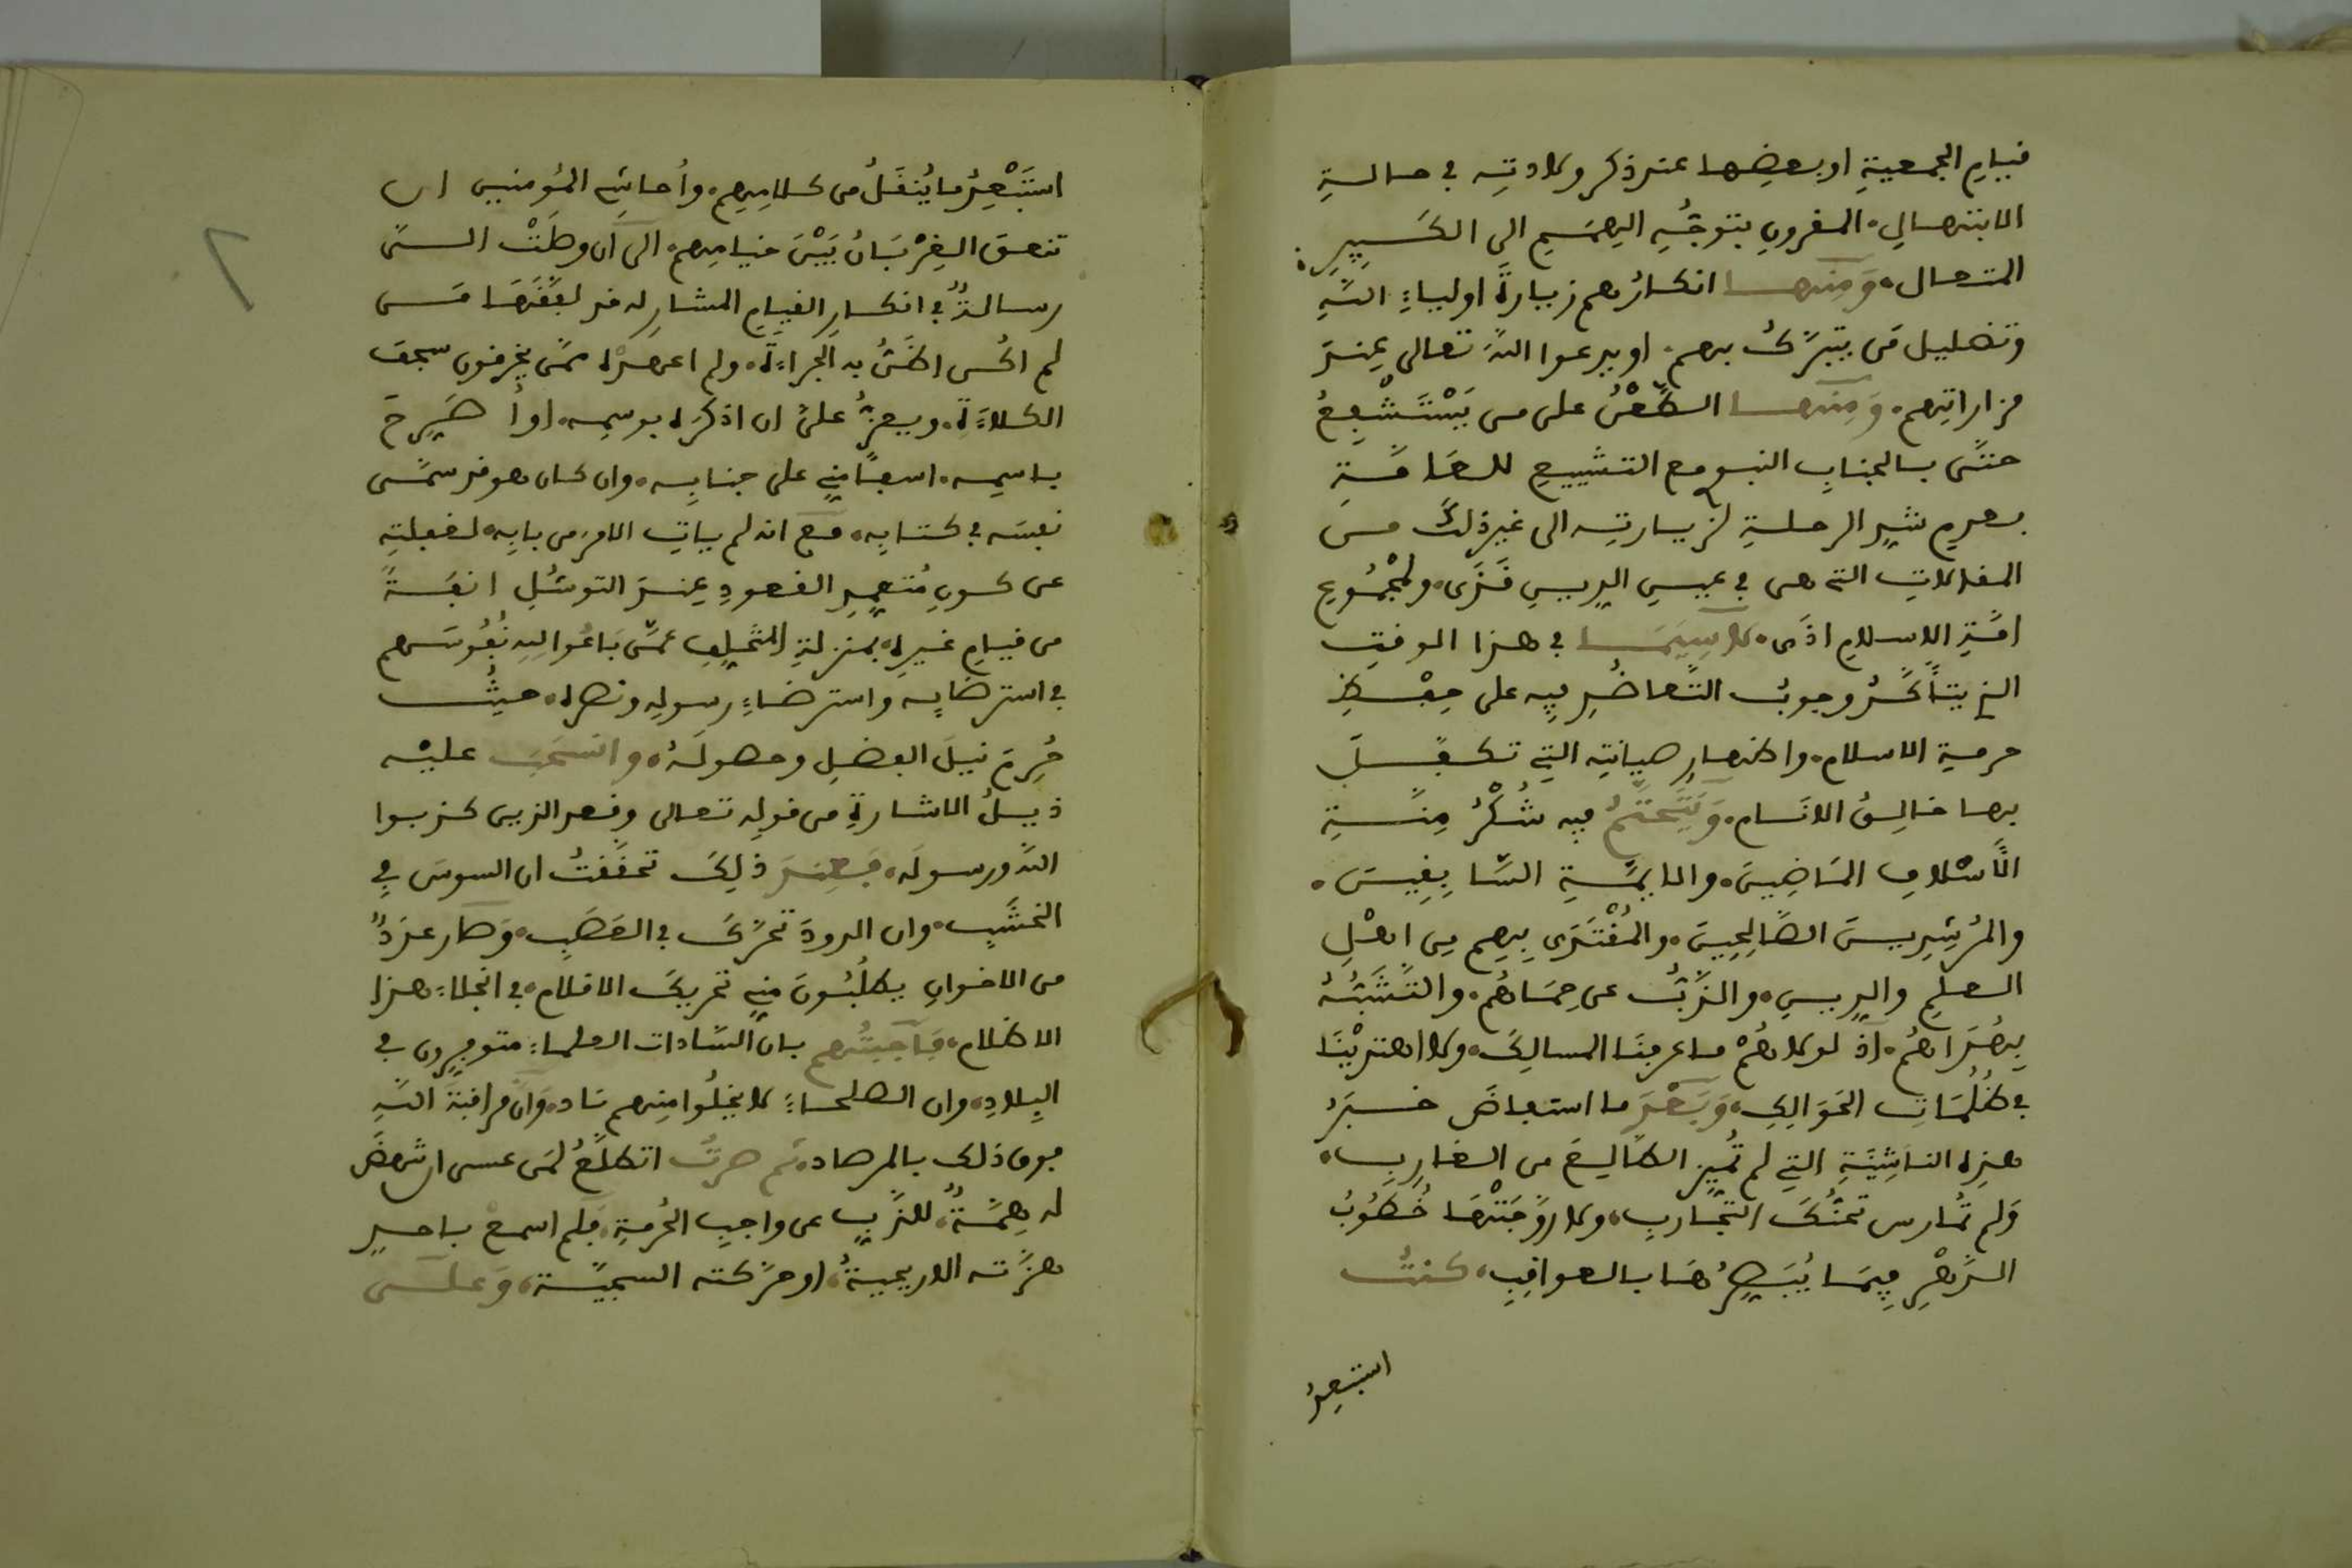 قيام الجمعية او بعضها عند ذكر ولادته في حالة
الابتهال، المقرون بتوجُّهِ الهِمَمِ الى الكَبِيرِ
المتعال، وَمِنها انكارُهم زيارةَ اولياءِ اللهِ
وتضليل مَن يتبرَّكُ بهم، او يدعوا اللهَ تعالى عِندَ
مزاراتِهم، وَمِنها الطَّعْنُ على من يَسْتَشْفِعُ
حتَّى بالجنابِ النبوي مع التشييع للعَامَّةِ
بعدمِ شدِّ الرحلةِ لزيارتِه الى غير ذلك من
المقالاتِ التي هي في عينِ الدِّينِ قَذَى، ولمجْمُوعِ
امَّةِ الاسلامِ اذًى، لاسِيَمَا في هذا الوقتِ
الذي يتأكَّدُ وجوبُ التَّعاضُدِ فيه على حِفْظِ
حرمة الاسلام، واظهارِ صيانتِه التِي تكفَّلَ
بها خالِقُ الانَام، وَيَتَحَتَّمُ فيه شُكْرُ مِنَّةِ
الأَسْلافِ المَاضِينَ، والايمَّةِ السَّابِقِينَ،
والمُرْشِدِينَ الصَّالِحِينَ، والمُقْتَدَى بِهِم مِن اهْلِ
العلمِ والدِّينِ، والذَّبُّ عن حِمَاهُم، والتَّشَبُّثُ
بِهُدَاهُم، اذ لولاهُمْ ما عرفنَا المسالِكَ، ولا اهتديْنَا
في ظُلُمَاتِ الحَوَالِكِ، وَبَعْدَ ما استفاضَ خبَرُ
هذِه النَاشِئَةِ التِي لم تُمَيِّز الطَّالِعَ من الغارِبِ،
وَلم تُمارس تحنُّكَ التَّجارِبِ، ولا رَوَّجَتْهَا خُطُوبُ
الدَّهْرِ فِيمَا يُبَصِّرُهَا بالعواقِبِ، كنتُ
استبعِدُ
استَبْعِدُ ما يُنقَلُ من كلامِهِم، وأُحاشِي المُؤمنين ان
تنعق الغِرْبَانُ بَيْنَ خيامِهم، الى ان وصَلَتْ الىَّ
رسالةٌ في انكارِ القيامِ المشارِ له قد لفَّقَهَا مَن
لم اكُن اظُنُّ به الجراءَةَ، ولم اعهدْه ممَّن يخرقون سجف
الكلاءَةِ، ويعزُّ علىَّ ان اذكرَه بوسمِه، او أُصَرِّحَ
باسمِه، اسفًا مِنِّي على جنابِه، وان كان هو قد سمَّى
نفسَه في كتابِه، مع انه لم ياتِ الامرَ من بابِه، لغفلتِه
عن كونِ مُتَعمِّدِ القعودِ عِندَ التوسُّلِ انفَةً
من قيامِ غيرِه، بمنزلةِ المُتَخلِّفِ عمَّن بَاعُوا للهِ نُفُوسَهم
في استرضايِه واسترضاءِ رسولِه ونصرِه، حيثُ
حُرِمَ نيلَ الفضلِ وحصولَهُ، وانسَحَبَ عليْه
ذيلُ الاشارةِ من قولِه تعالى وقعد الذين كذبوا
اللهَ ورسولَه، فَعِندَ ذلِكَ تحقَّقتُ ان السوسَ فِي
الخشَبِ، وان الدودَ تحرَّكَ في القصَبِ، وَصَار عددٌ
من الاخوانِ يطلُبُونَ مِنِّي تحريكَ الاقلامِ، في انجلاءِ هذا
الاظلامِ، فَأَجبتُهم بان السَّادات العلماءَ متوفِّرون في
البِلادِ، وان الصلحاءَ لا يخلُوا منهم نَاد، وَانَّ مراقبةَ اللهِ
فوق ذلك بالمرصاد، ثم صِرتُ اتطلَّعُ لمَن عسى ان تنهضَ
له هِمَّةٌ، للذَّبِّ عن واجبِ الحُرمةِ، فلم اسمعْ باحدٍ
هزَّته الاريحيةُ، او حرَّكته السجيَّة، وَعلى